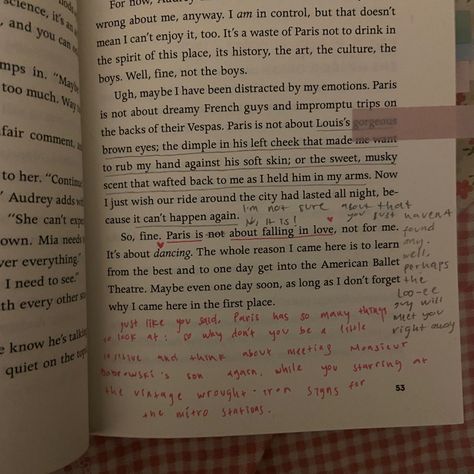 science, it's an
, and you can
mps in. "Maybe
too much. Way
fair comment,
to her. "Continue
' Audrey adds
"She can't
own. Mia needs
ver everything"
I need to see."
with every other
he know he's
quiet on the
For now, Audrey
wrong about me, anyway. I am in control, but that doesn't
mean I can't enjoy it, too. It's a waste of Paris not to drink in
the spirit of this place, its history, the art, the culture, the
boys. Well, fine, not the boys.
Ugh, maybe I have been distracted by my emotions. Paris
is not about dreamy French guys and impromptu trips on
the backs of their Vespas. Paris is not about Louis's gorgeous
brown eyes; the dimple in his left cheek that made me want
to rub my hand against his soft skin; or the sweet, musky
scent that wafted back to me as I held him in my arms. Now
I just wish our ride around the city had lasted all night, be-
cause it can't happen again.
I'm not sure about that
No, it is!
you just haven't
found
any.
well,
perhaps
the
guy will
meet you
right away
So, fine. Paris is not about falling in love, not for me.
It's about dancing. The whole reason I came here is to learn
from the best and to one day get into the American Ballet
Theatre. Maybe even one day soon, as long as I don't forget
why I came here in the first place.
just like you said, Paris has so many things
to look at; so why don't you be a little
and think about meeting Monsieur
Dabrowski's son again, while you starring at
the vintage wrought-iron signs for
the métro stations.
53